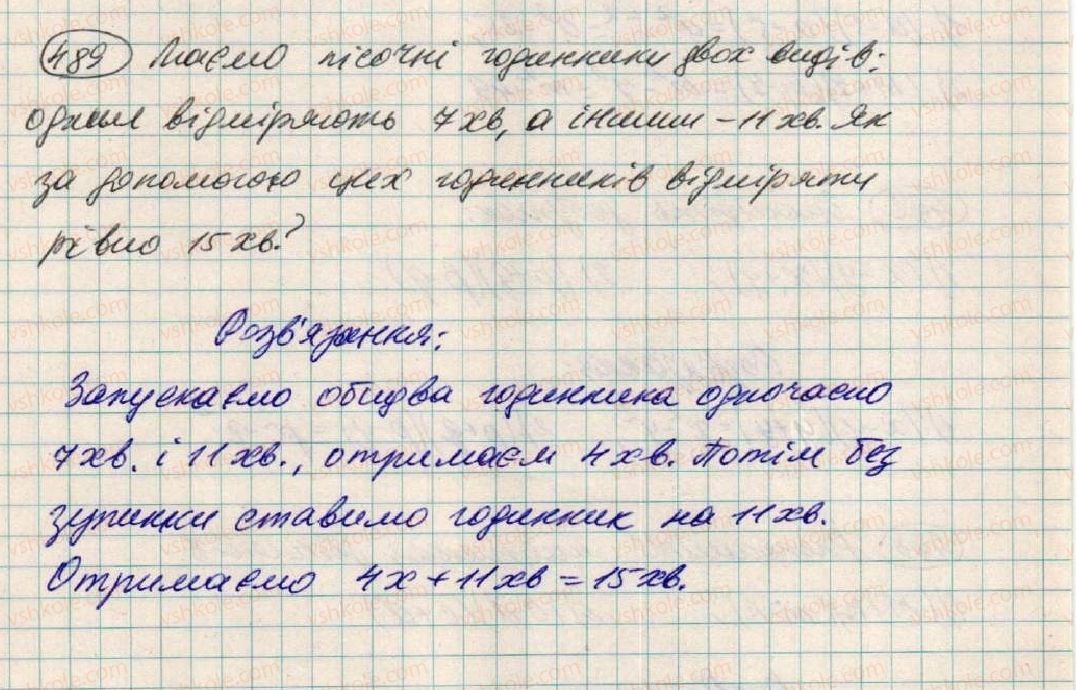 489 Маємо пісочні годинники двох видів:
одний відміряють 7 хв, а іншим – 11 хв. Як
за допомогою цих годинників відміряти
рівно 15 хв.?
Розв'язання:
Запускаємо обидва годинника одночасно
7хв. і 11хв., отримаєм 4хв. Потім без
зупинки ставимо годинник на 11хв.
Отримаємо 4х + 11хв = 15хв.